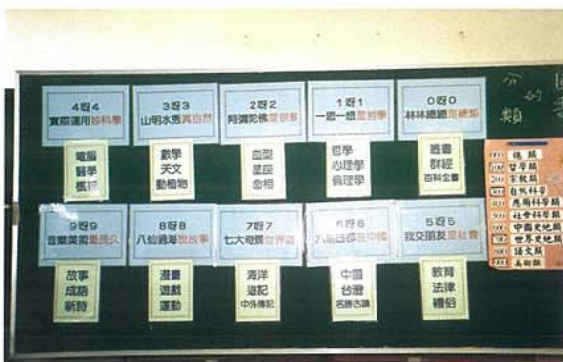 4呀4
實際運用妙科學
電腦
醫學
3呀3
山明水秀真自然
數學
天文
動植物
2呀2
阿彌陀佛是宗教
血型
星座
命相
1呀1
一思一想是哲學
哲學
心理學
倫理學
0呀0
林林總總是總類
叢書
群經
百科全書
9呀9
音樂美術最長久
故事
成語
新詩
8呀8
八仙過海說故事
漫畫
遊戲
運動
7呀7
七大奇景世界遊
海洋
遊記
中外傳記
6呀6
六朝古都在中國
中國
台灣
名勝古蹟
5呀5
我交朋友是社會
教育
法律
禮俗
的
分類
000 總類
100 哲學類
200 宗教類
300 自然科學
400 應用科學類
500 社會科學類
600 中國史地類
700 世界史地類
800 語文類
900 美術類